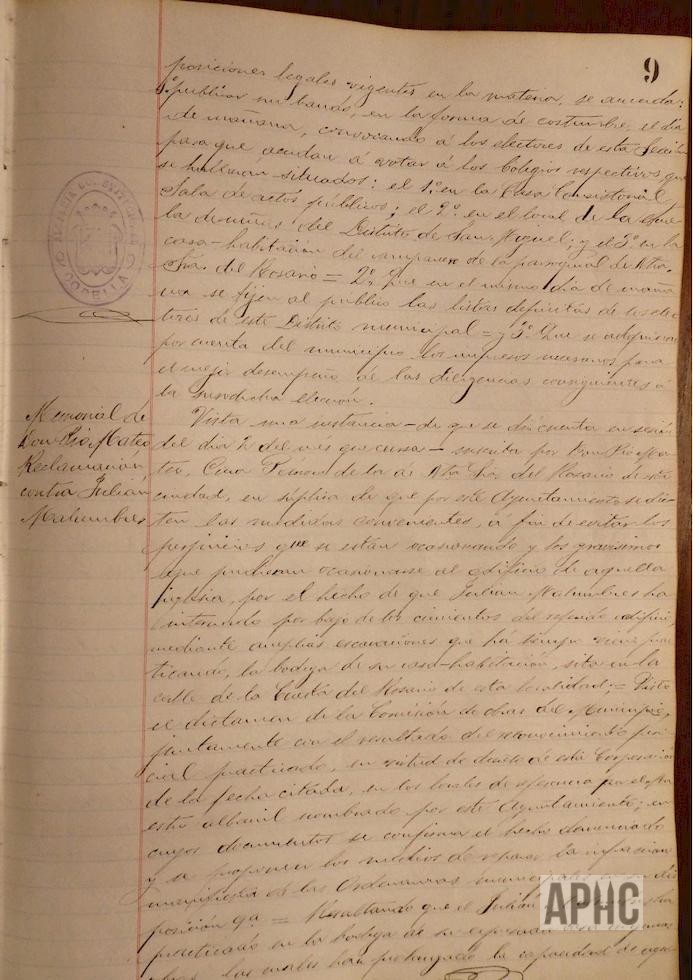 9
posiciones legales vigentes en la materia, se acuerda:
publicar un bando, en la forma de costumbre, el día
de mañana, convocando á los electores de esta
para que acudan á votar á los Colegios respectivos que
se hallaran situados: el 1º en la Casa Consistorial
Sala de actos públicos; el 2º en el local de la Escue
la de niñas del Distrito de San Miguel; y el 3º en la
casa-habitación del campanero de la parroquial de Ntra.
Sra. del Rosario = 2º Que en el mismo día de maña
na se fijen al publico las listas de los elec
tores de este Distrito municipal = y 3º Que se adquieran
por cuenta del municipio los impresos necesarios para
el mejor desempeño de las diligencias consiguientes á
la susodicha elección.
Memorial de
Don Pio Mateo
Reclamación
contra Julian
Malumbres
Vista una instancia - de que se dió cuenta en sesión
del día 2 del mes que cursa - suscrita por Don Pio Ma
teo, Cura de la de Ntra Sra. del Rosario de esta
ciudad, en súplica de que por este Ayuntamiento se dic
ten las medidas convenientes, á fin de evitar los
perjuicios que se están ocasionando y los gravisimos
que pudieran ocasionarse al edificio de aquella
iglesia, por el hecho de que Julian Malumbres ha
internado por bajo de los cimientos del referido edificio,
mediante amplias escavaciones que ha tiempo viene prac
ticando, la bodega de su casa-habitación, sita en la
calle de la Cuesta del Rosario de esta localidad; = Visto
el dictamen de la Comisión de obras del Municipio,
juntamente con el resultado del reconocimiento peri
cial practicado, en virtud de decreto de esta Corporación
de la fecha citada, en los locales de referencia por el
albañil nombrado por este Ayuntamiento; en
cuyos documentos se confirma el hecho denunciado
y se proponen los medios de reparar la infracción
manifiesta de las Ordenanzas municipales en su dis
posición 9ª = Resultando que el Julian
practicado en la bodega de su
las cuales han prolongado la capacidad de
CORELLA
APHC